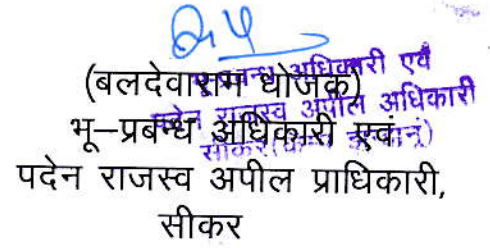 (बलदेवाराम धोजक)
भू–प्रबन्ध अधिकारी एवं
पदेन राजस्व अपील प्राधिकारी,
सीकर
अधिकारी एवं
पदेन राजस्व अपील अधिकारी
सीकर